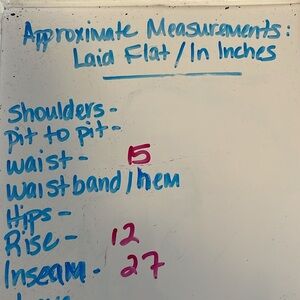 Approximate Measurements:
Laid Flat/In Inches
Shoulders-
pit to pit-
waist- 15
waistband/hem
Hips-
Rise- 12
Inseam- 27